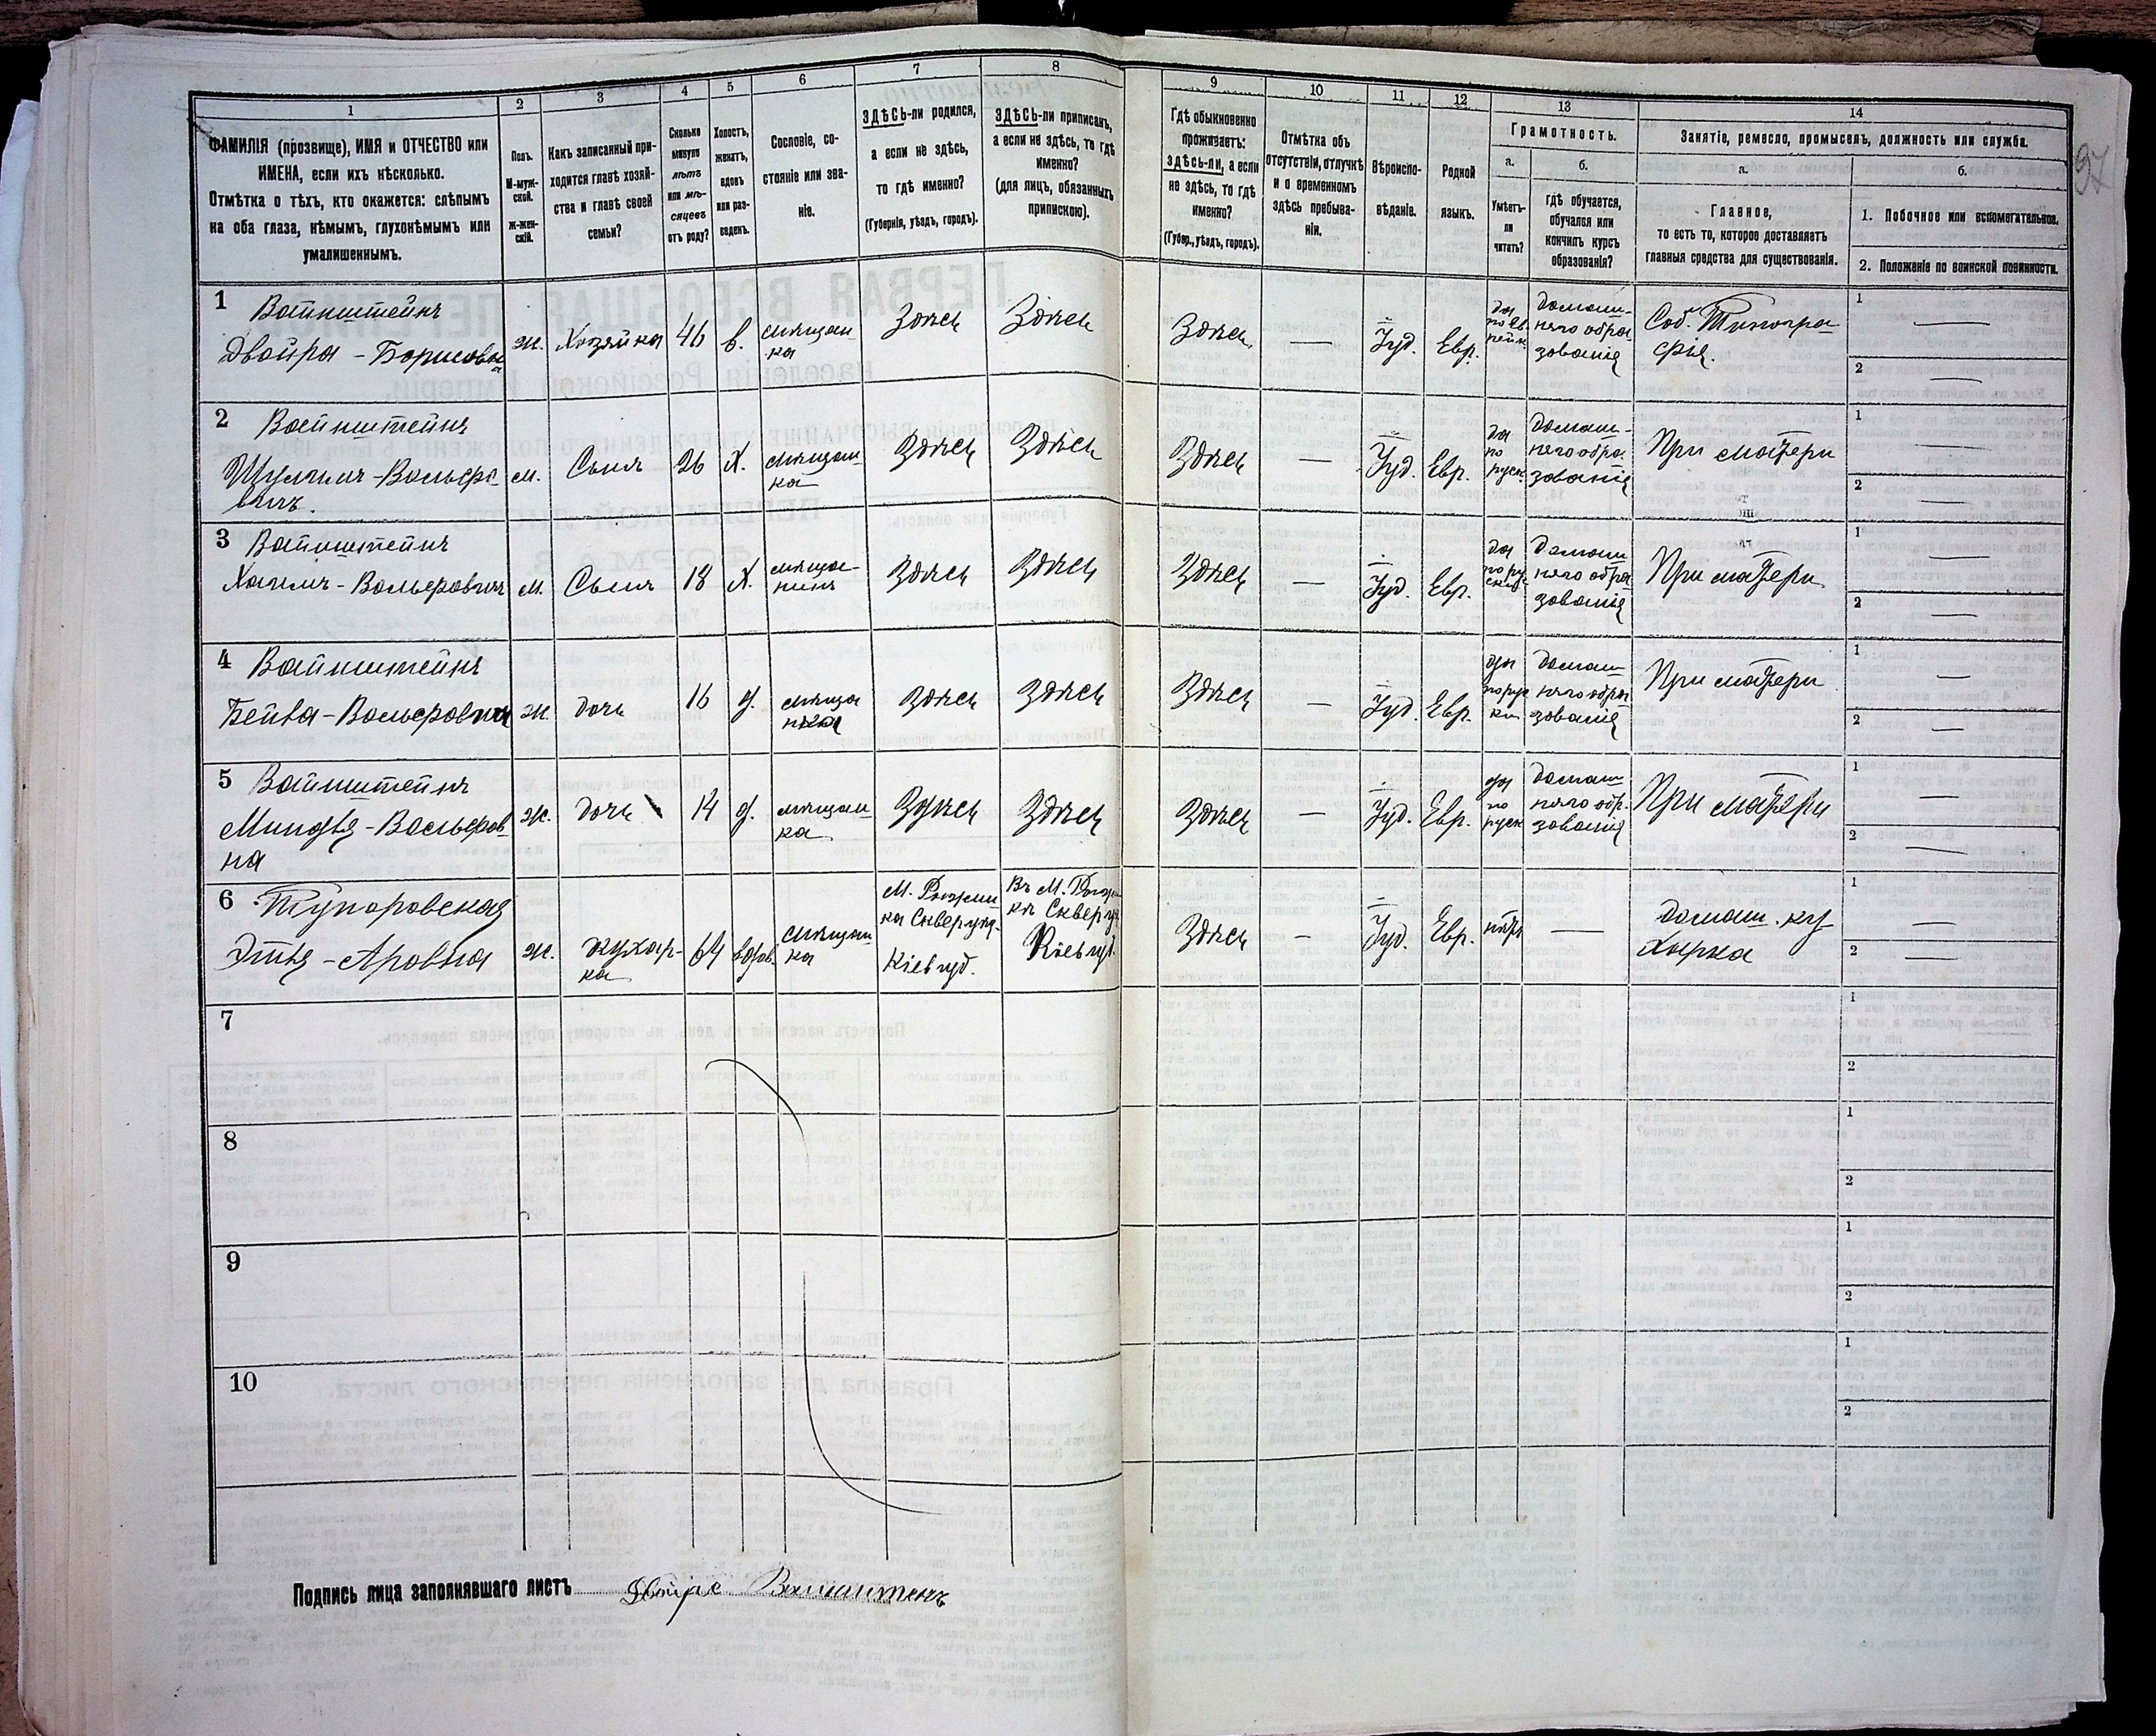 1
2
3
4
5
6
7
8
9
10
11
12
13
14
ФАМИЛІЯ (прозвище), ИМЯ и ОТЧЕСТВО или
ИМЕНА, если ихъ нѣсколько.
Отмѣтка о тѣхъ, кто окажется: слѣпымъ
на оба глаза, нѣмымъ, глухонѣмымъ или
умалишеннымъ.
Полъ.
М-муж-
ской.
Ж-жен-
скій.
Какъ записанный при-
ходится главѣ хозяй-
ства и главѣ своей
семьи?
Сколько
минуло
лѣтъ
или мѣ-
сяцевъ
отъ роду?
Холостъ,
женатъ,
вдовъ
или раз-
веденъ.
Сословіе, со-
стояніе или зва-
ніе.
ЗДѢСЬ-ли родился,
а если не здѣсь,
то гдѣ именно?
(Губернія, уѣздъ, городъ).
ЗДѢСЬ-ли приписанъ,
а если не здѣсь, то гдѣ
именно?
(для лицъ, обязанныхъ
припискою).
Гдѣ обыкновенно
проживаетъ:
здѣсь-ли, а если
не здѣсь, то гдѣ
именно?
(Губер., уѣздъ, городъ).
Отмѣтка объ
отсутствіи, отлучкѣ
и о временномъ
здѣсь пребыва-
ніи.
Вѣроиспо-
вѣданіе.
Родной
языкъ.
Грамотность.
а.
б.
Умѣетъ-
ли
читать?
гдѣ обучается,
обучался или
кончилъ курсъ
образованія?
Занятіе, ремесло, промыселъ, должность или служба.
а.
б.
Главное,
то есть то, которое доставляетъ
главныя средства для существованія.
1. Побочное или вспомагательное.
2. Положеніе по воинской повинности.
97
1 Вайнштейнъ
Двойра - Борисовна
ж.
Хозяйка
46
в.
мѣщан
ка
Здѣсь
Здѣсь
Здѣсь
—
Іуд.
Евр.
да
по Ев
рейск
домаш-
няго обра
зованія
Соб. Типогра
фія.
1 —
2 —
2 Вайнштейнъ
Вольфо-
вичъ.
м.
Сынъ
26
Х.
мѣщан
ка
Здѣсь
Здѣсь
Здѣсь
—
Іуд.
Евр.
да
по
руск.
домаш-
няго обра
зованія
При матери
1 —
2 —
3 Вайнштейнъ
Хаимъ - Вольфовичъ
м.
Сынъ
18
Х.
мѣща-
нинъ
Здѣсь
Здѣсь
Здѣсь
—
Іуд.
Евр.
да
по ру
ски
домаш
няго обра
зованія
При матери
1 —
2 —
4 Вайнштейнъ
ж.
дочь
16
д.
мѣща
нка
Здѣсь
Здѣсь
Здѣсь
—
Іуд.
Евр.
да
по рус
ки
домаш
няго обра
зованія
При матери
1 —
2 —
5 Вайнштейнъ
Миндля - Вольфов
на
ж.
дочь
14
д.
мѣщан
ка
Здѣсь
Здѣсь
Здѣсь
—
Іуд.
Евр.
да
по
руск
домаш
няго обр.
зованія
При матери
1 —
2 —
6 Тупоровская
Этля - Аровна
ж.
кухар-
ка
64
вдов.
мѣщан
ка
М. Ружин
ка Сквер уѣз.
Кіев губ.
Въ М. Ружи
ка Сквер уѣ
Кіев губ.
Здѣсь
—
Іуд.
Евр.
нѣтъ
—
домаш. ку
харка
1 —
2 —
7
1
2
8
1
2
9
1
2
10
1
2
Подпись лица заполнявшаго листъ Двойре Вайнштенъ